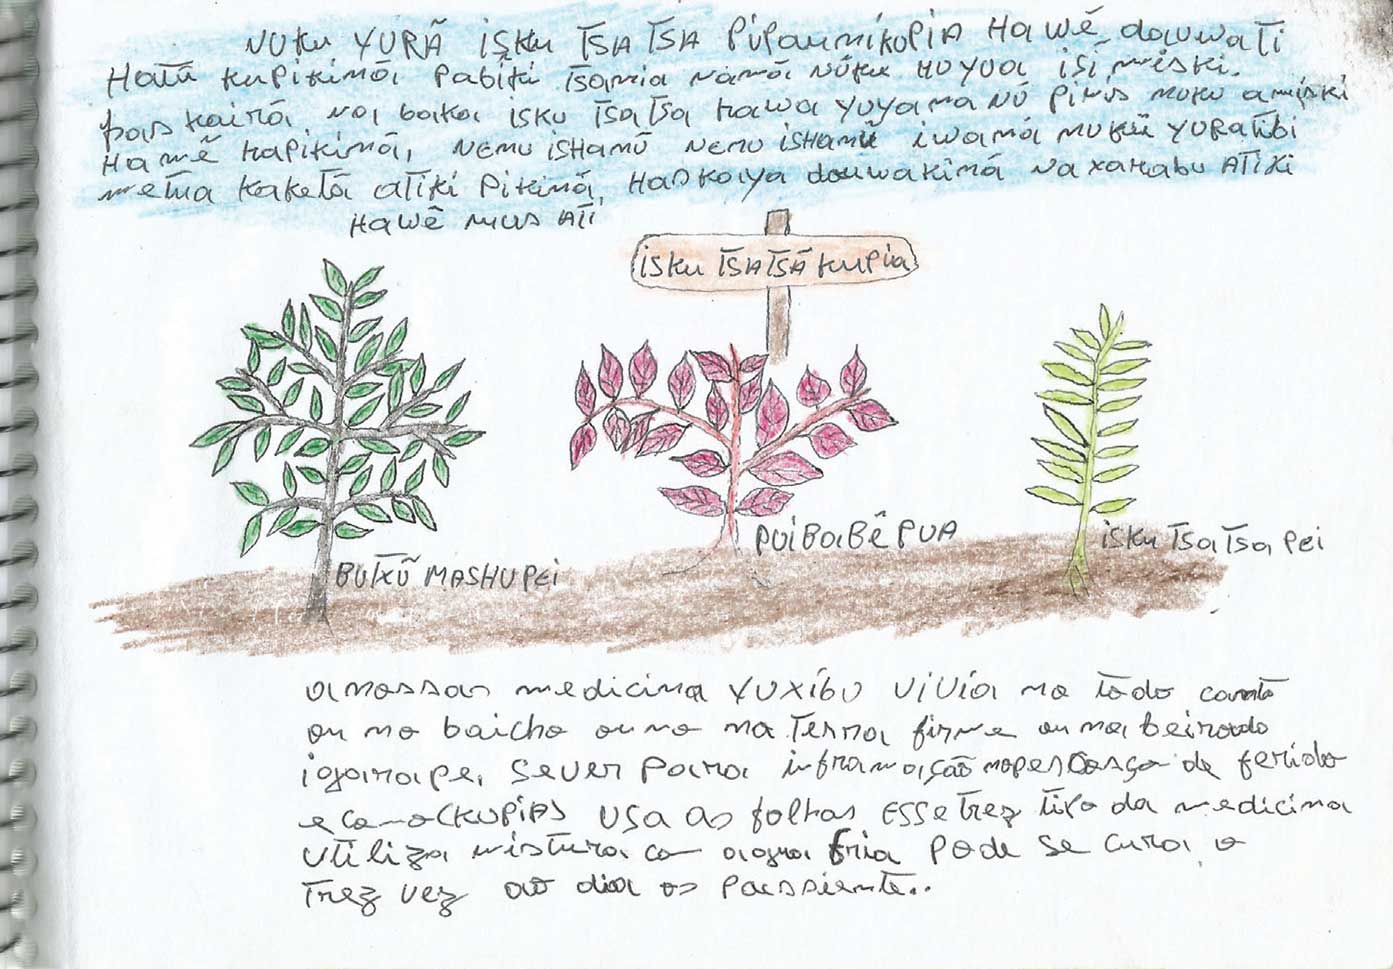 NUKU YURÃ iSKU TSA TSA PiPaumiKUPiA HaWÊ dauwaTi
HaTũ KUPiKiMã PabiKi TSamia Namã NUKU HUYUa iSi miSKi.
baS Kairã, Nai baKa iSKU TSaTSa Hawa YUYAMA NÛ PiMiS MUKU amiSKi
HaWẼ KAPiKiMã, NeNU iSHaMŨ NeNU iSHaMŨ iWamã MUKU YURATiBi
meTSa KaKeTã aTiKi PiKiMã, HaSKaYa dauwaKiMã NaXaKabU ATiKi
HaWÊ MUS ATi
iSKU TSATSÃ KUPia
BUTXŨ MASHU Pei
PUiBaBÊ PUA
iSKU TSaTSa Pei
a nossas medicina YUXiBU ViVia no todo canto
ou no baicho ou no na Terra firme ou na beirado
igarape, sever Para inframação nopescosço de ferido
e como (KUPiA) USa as folhas ESSe Trez tipo da medicina
UTiliza mistura co agua fria Pode se cura, o
Trez vez ao dia os Passiente..